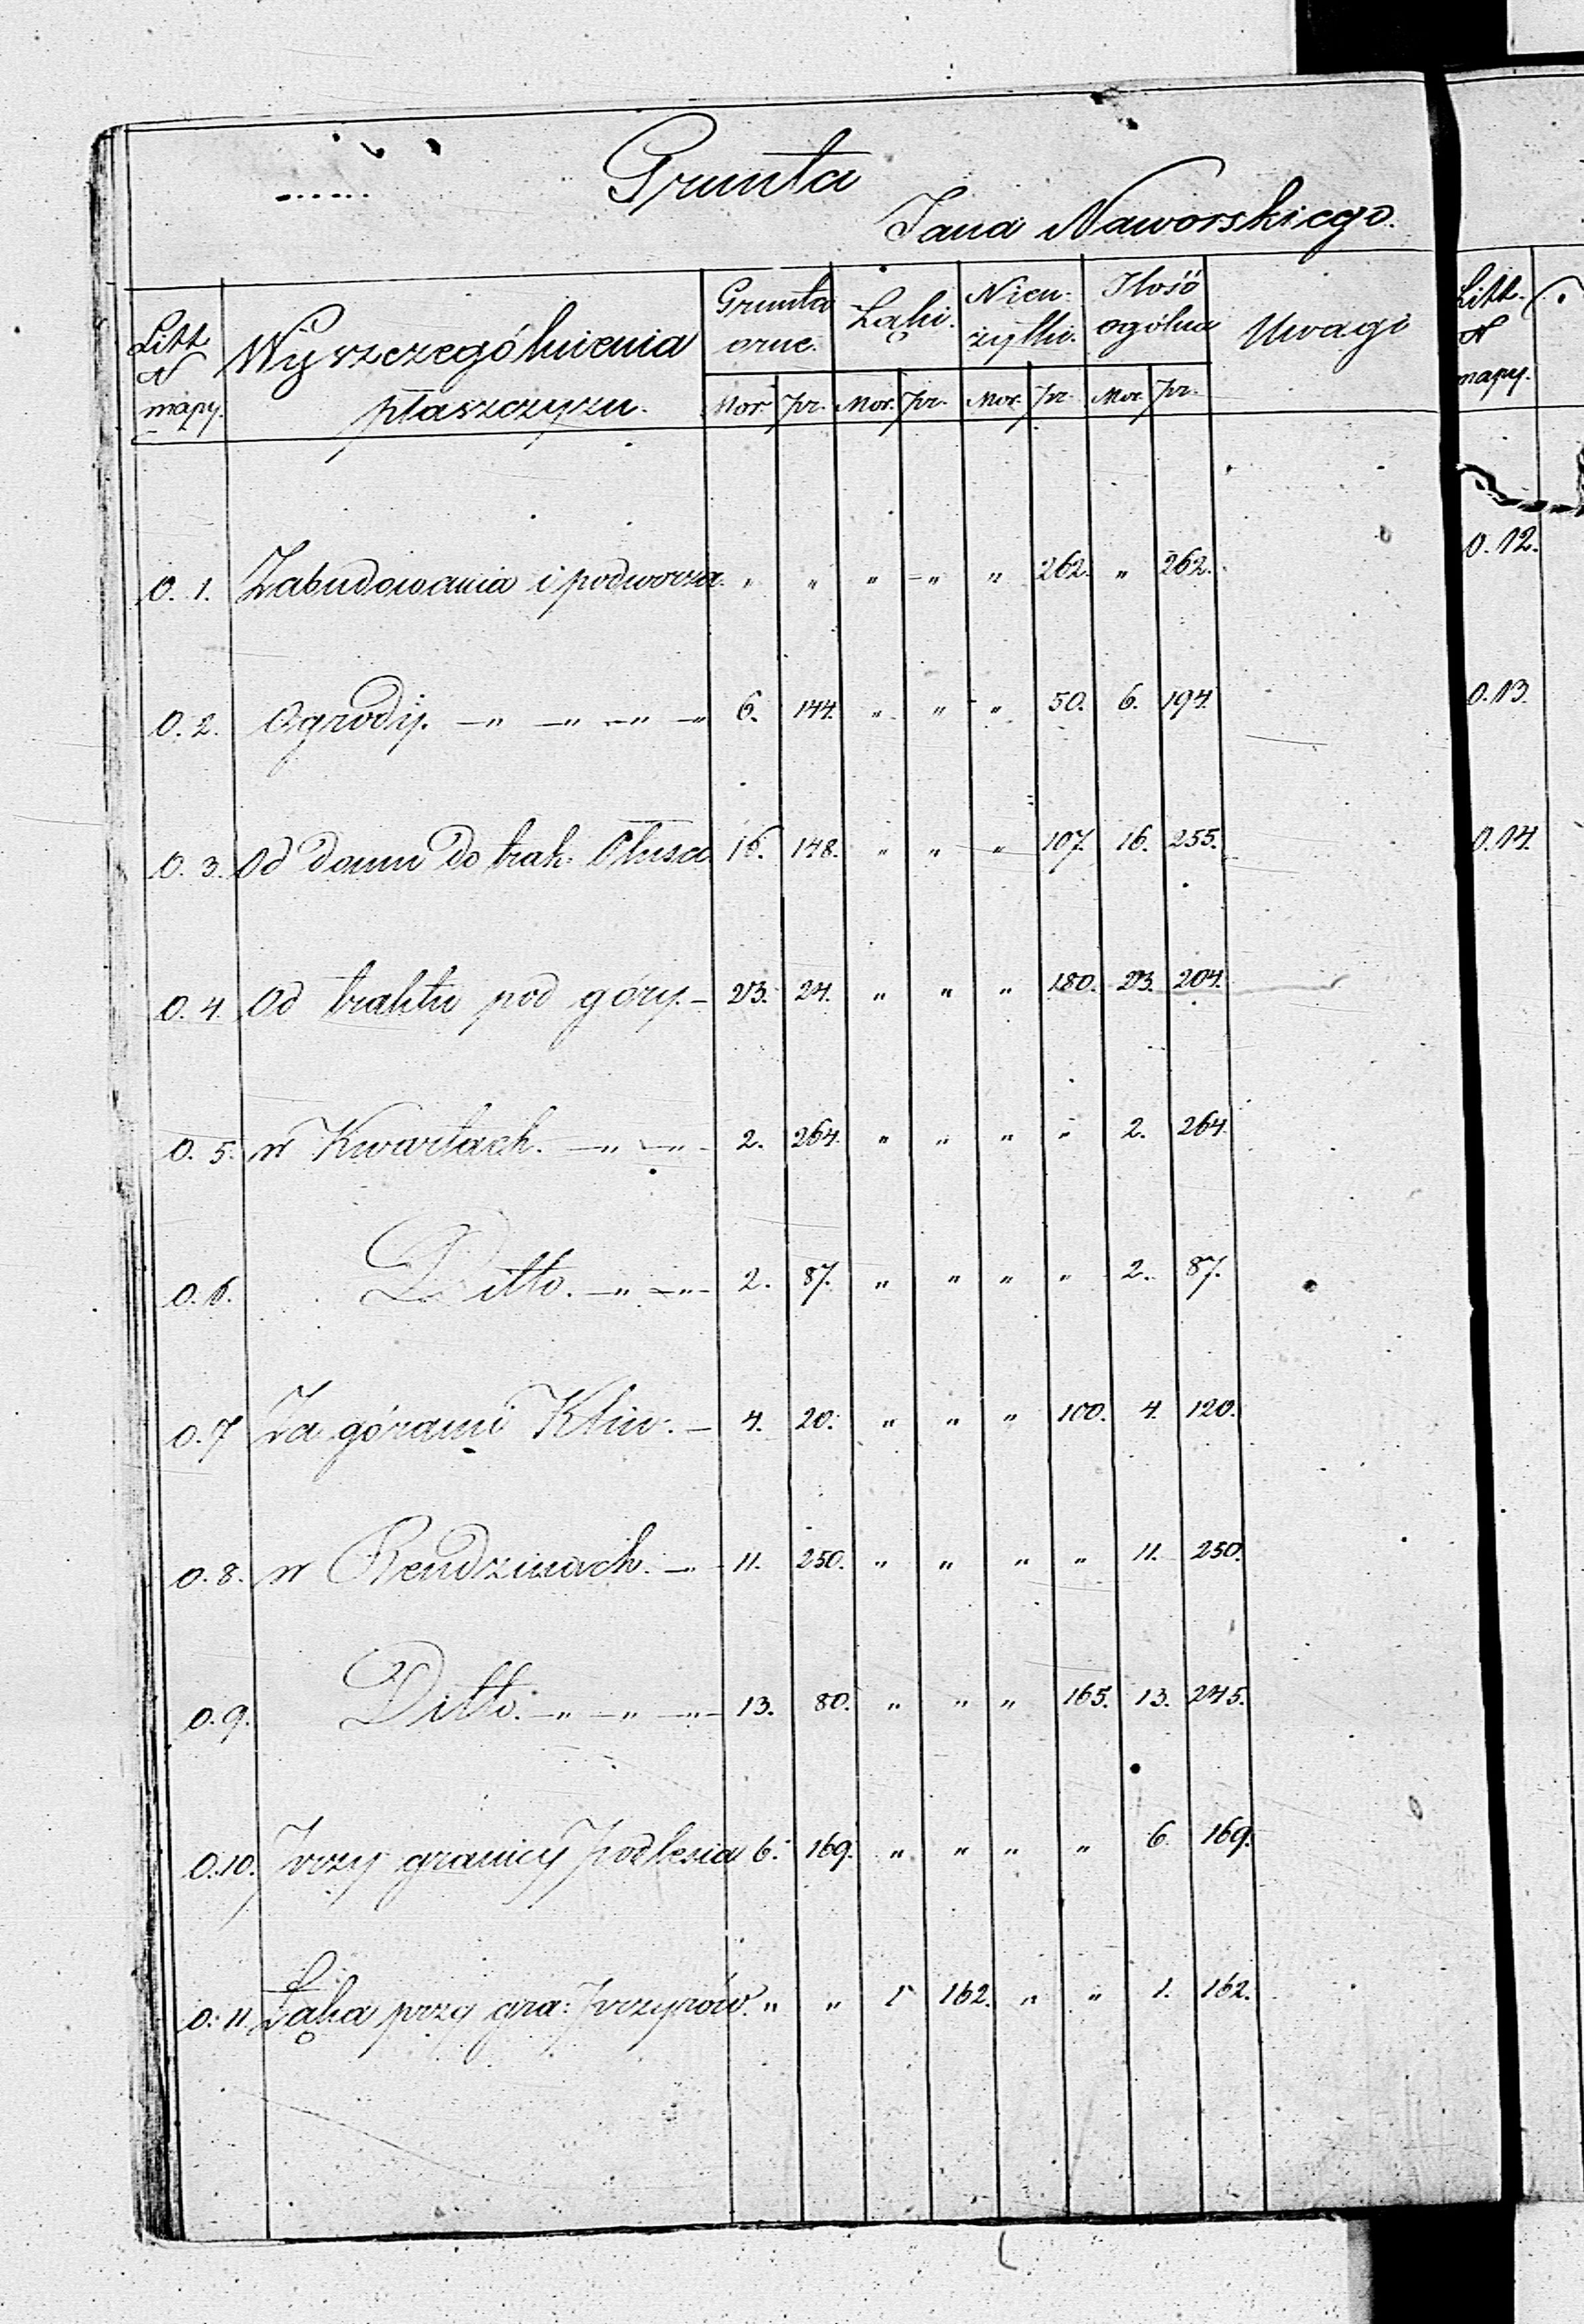 Grunta
Jana Naworskiego.
Litt. N mapy. | Wyszczególnienia płaszczyzn. | Grunta orne. | Łąki. | Nieu-żytki. | Ilość ogólna | Uwagi
Mor. | pr. | Mor. | pr. | Mor. | pr. | Mor. | pr.
O. 1. | Zabudowania i podworza. | " | " | " | " | " | 262. | " | 262.
O. 2. | Ogrody. —"— —"— —"— | 6. | 144. | " | " | " | 50. | 6. | 194.
O. 3. | Od domu do trak: Olusa | 16. | 148. | " | " | " | 107. | 16. | 255.
O. 4. | Od traktu pod góry. — | 23. | 24. | " | " | " | 180. | 23. | 204.
O. 5. | w Kwartach. —"— —"— | 2. | 264. | " | " | " | " | 2. | 264.
O. 6. | Ditto. —"— —"— | 2. | 87. | " | " | " | " | 2. | 87.
O. 7 | Za górami Klin: — | 4. | 20. | " | " | " | 100. | 4. | 120.
O. 8. | w Rendzinach. — | 11. | 250. | " | " | " | " | 11. | 250.
O. 9. | Ditto. —"— —"— —"— | 13. | 80. | " | " | " | 165. | 13. | 245.
O. 10. | Przy granicy Podlesia | 6. | 169. | " | " | " | " | 6 | 169.
O. 11 | Łąka przy gra: Przyrów. | " | " | 1 | 162. | " | " | 1. | 162.
Litt.
N
mapy.
O. 12.
O. 13.
O. 14.